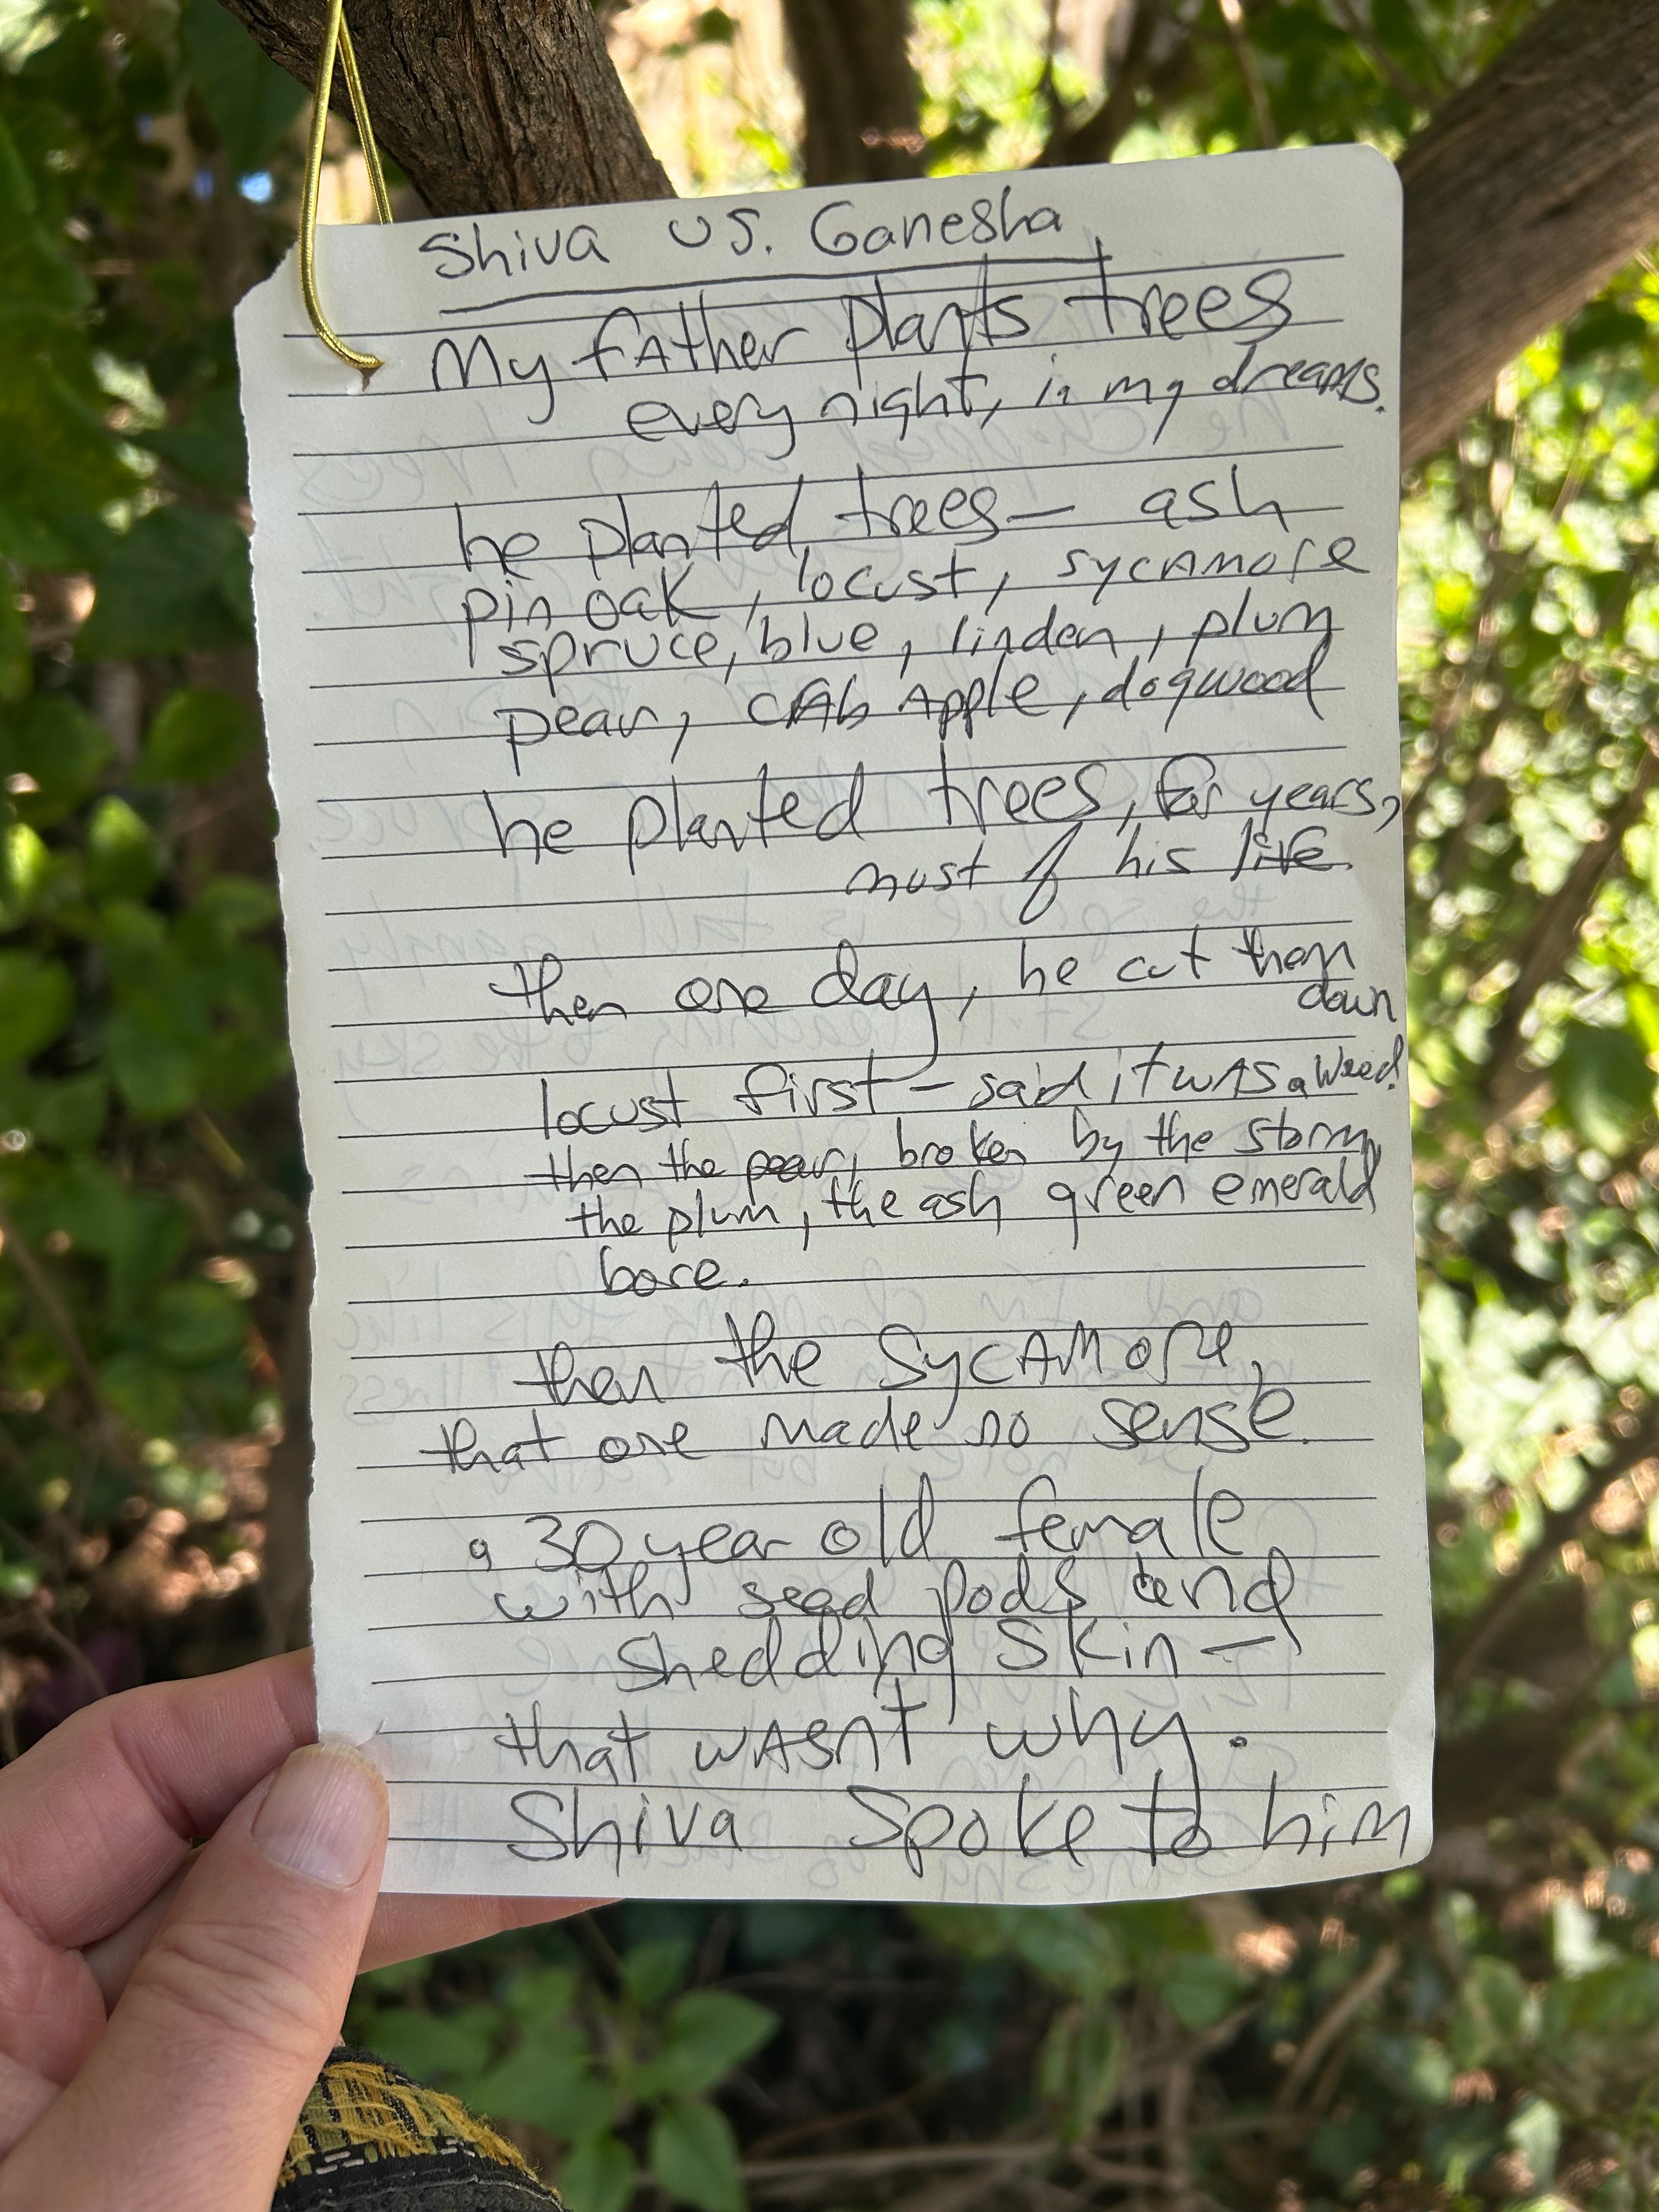 Shiva vs. Ganesha
My father plants trees
every night, in my dreams.
he planted trees— ash
pin oak, locust, sycamore
spruce, blue, linden, plum
pear, crab Apple, dogwood
he planted trees, for years,
most of his life.
then one day, he cut them
down
locust first— said it was a weed.
then the pear, broken by the storm,
the plum, the ash green emerald
bore.
then the sycamore,
that one made no sense.
a 30 year old female
with seed pods and
shedding skin—
that wasnt why.
Shiva spoke to him